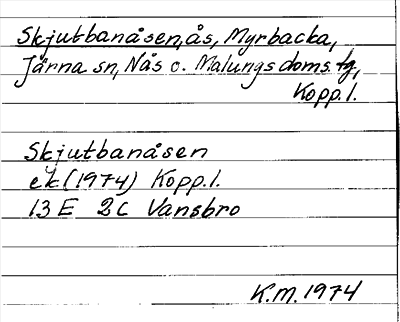 Skjutbanåsen, ås, Myrbacka,
Järna sn, Nås o. Malungs doms. tg,
Kopp. l.
Skjutbanåsen
ek (1974) Kopp. l.
13 E 2C Vansbro
K.M. 1974